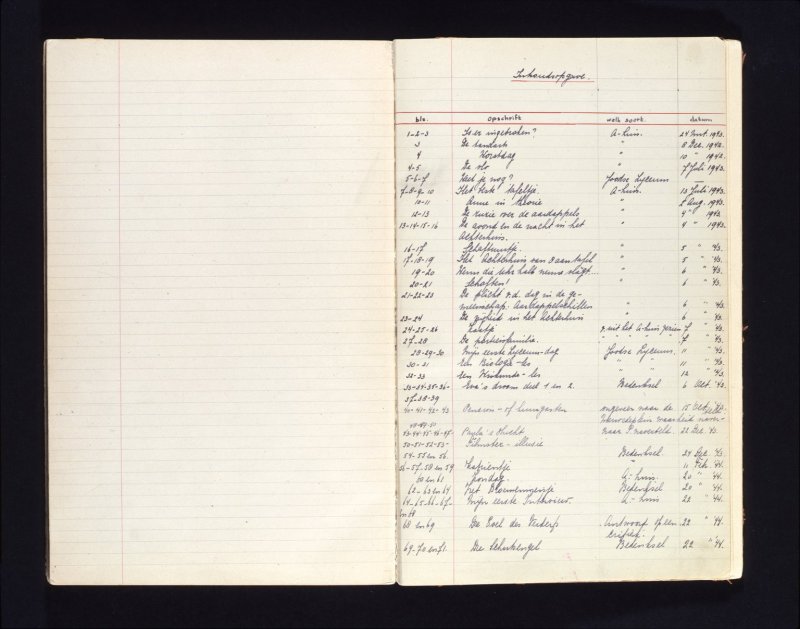 Inhoudsopgave.
blz. opschrift welk soort. datum
1-2-3 Is er ingebroken? A-huis. 24 Mrt. 1943.
3 De tandarts " 8 Dec. 1942.
4 Worstdag " 10 " 1942.
4-5 De vlo " 7 Juli 1943.
5-6-7 Weet je nog? Joodse Lyceum —
7-8-9-10 Het beste tafeltje A-huis. 13 Juli 1943.
10-11 Anne in theorie " 2 Aug. 1943.
12-13 De ruzie over de aardappels " 4 " 1943.
13-14-15-16 De avond en de nacht in het " 4 " 1943.
Achterhuis.
16-17 Schaftuurtje. " 5 " 43.
17-18-19 Het Achterhuis van 8 aan tafel " 5 " 43.
19-20 Wenn die Uhr halb neune slägt... " 6 " 43.
20-21 Schaften! " 6 " 43.
21-22-23 De plicht v.d. dag in de ge-
meenschap: Aardappelschillen " 6 " 43.
23-24 De vrijheid in het Achterhuis " 6 " 43.
24-25-26 Kaatje v. uit het A-huis gezien 7 " 43.
27-28 De portiersfamilie. " " " " 7 " 43.
28-29-30 Mijn eerste Lyceum-dag Joodse Lyceum. 11 " 43.
30-31 Een Biologie-les " " 11 " 43.
32-33 Een Wiskunde-les " " 12 " 43.
33-34-35-36- Eva's droom deel 1 en 2. Bedenksel 6 Oct. 43.
37-38-39
40-41-42-43 Pension- of huurgasten ongeveer naar de 15 Oct. 43.
waarheid
Paula's Vlucht naar P. naverteld. 22 Dec. 43.
50-51-52-53- Filmster-illusie
54-55 en 56 Bedenksel. 24 Dec. 43
56-57-58 en 59 Katrientje " 11 Feb. 44.
60 en 61 Zondag. A-huis. 20 " 44.
62-63 en 64 Het Bloemenmeisje Bedenksel 20 " 44.
64-65-66-67- Mijn eerste Interview. A-huis 22 " 44.
en 68
68 en 69 De Poel des Verderfs Antwoord op een 22 " 44.
69-70 en 71. De Schutsengel Bedenksel 22 " 44.